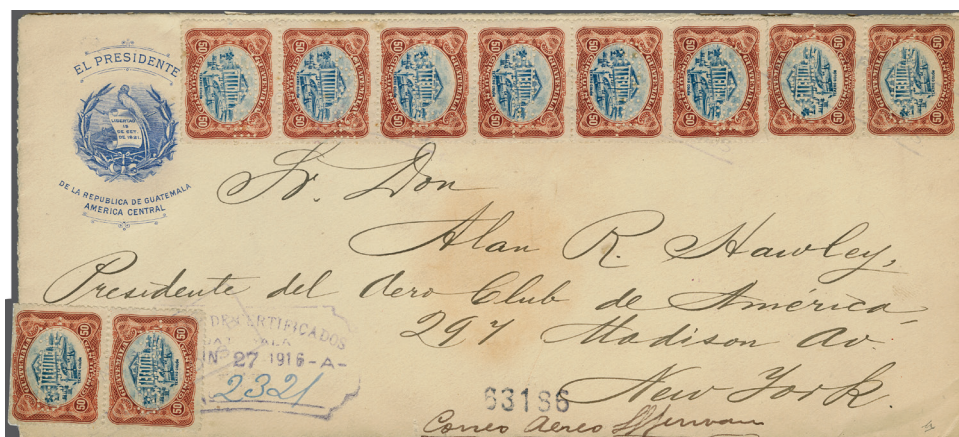 EL PRESIDENTE
LIBERTAD
15
DE SEP.
DE 1821
DE LA REPUBLICA DE GUATEMALA
AMERICA CENTRAL
50 50 50 50 50 50 50 50
Sr. Don
Alan R. Hawley,
Presidente del Aero Club de América,
297 Madison Av.
New York.
CERTIFICADOS
27 1916-A-
2321
50 50
63186
Correo Aereo